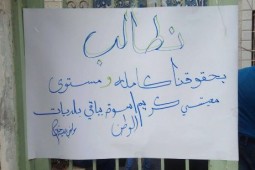 نطالب
بحقوقنا كاملة ومستوى
معيشي كريم اسوة بباقي بلديات
الوطن